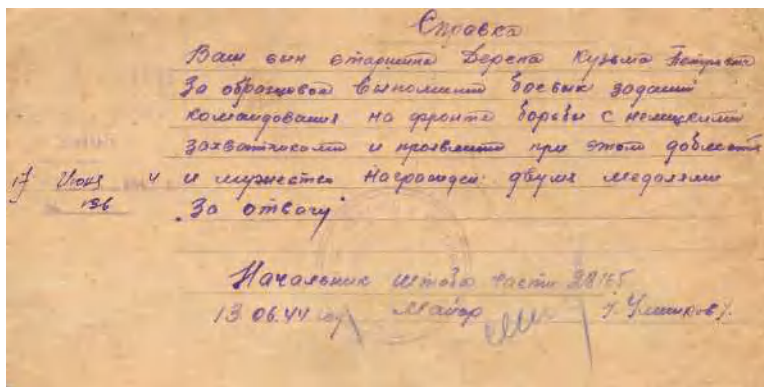 Справка
Ваш сын старшина Дереча Кузьма
За образцовое выполнение боевых заданий
командования на фронте борьбы с немецкими
захватчиками и проявление при этом доблести
17 Июня 4 и мужество награжден двумя медалями
196 "За отвагу"
Начальник штаба части 28165
13.06.44 году Майор